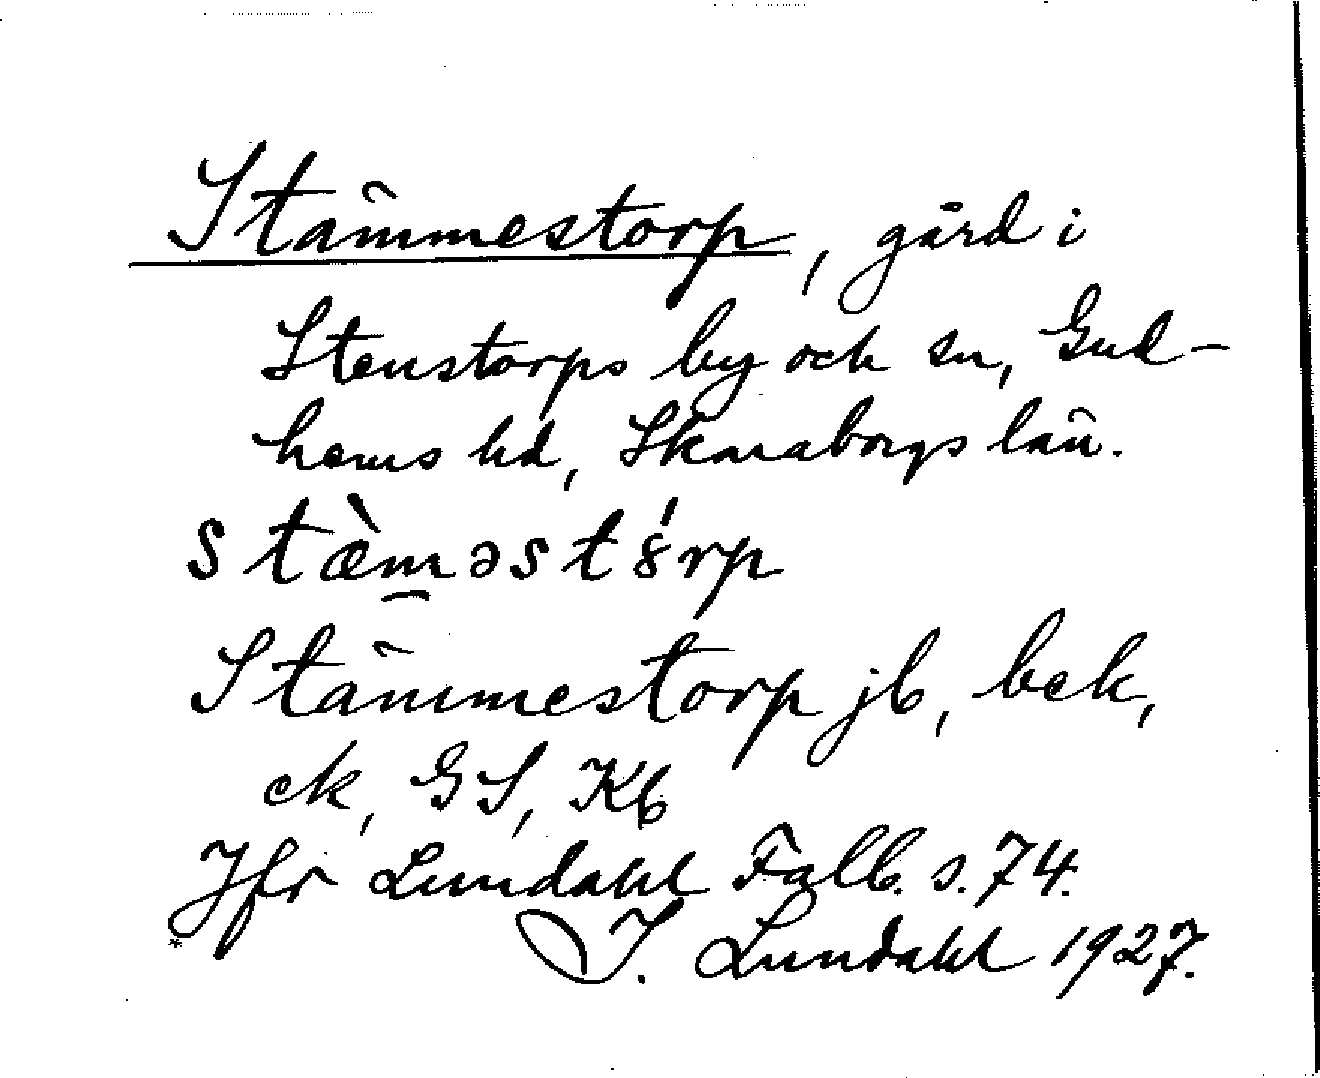 Stämmestorp, gård i
Stenstorps by och sn, Gud-
hems hd, Skaraborgs län.
stæ̀m̲əstȣ́rp
Stämmestorp jb, bek,
ek, GS, Kb
Jfr Lundahl Falb. s. 74.
I. Lundahl 1927.